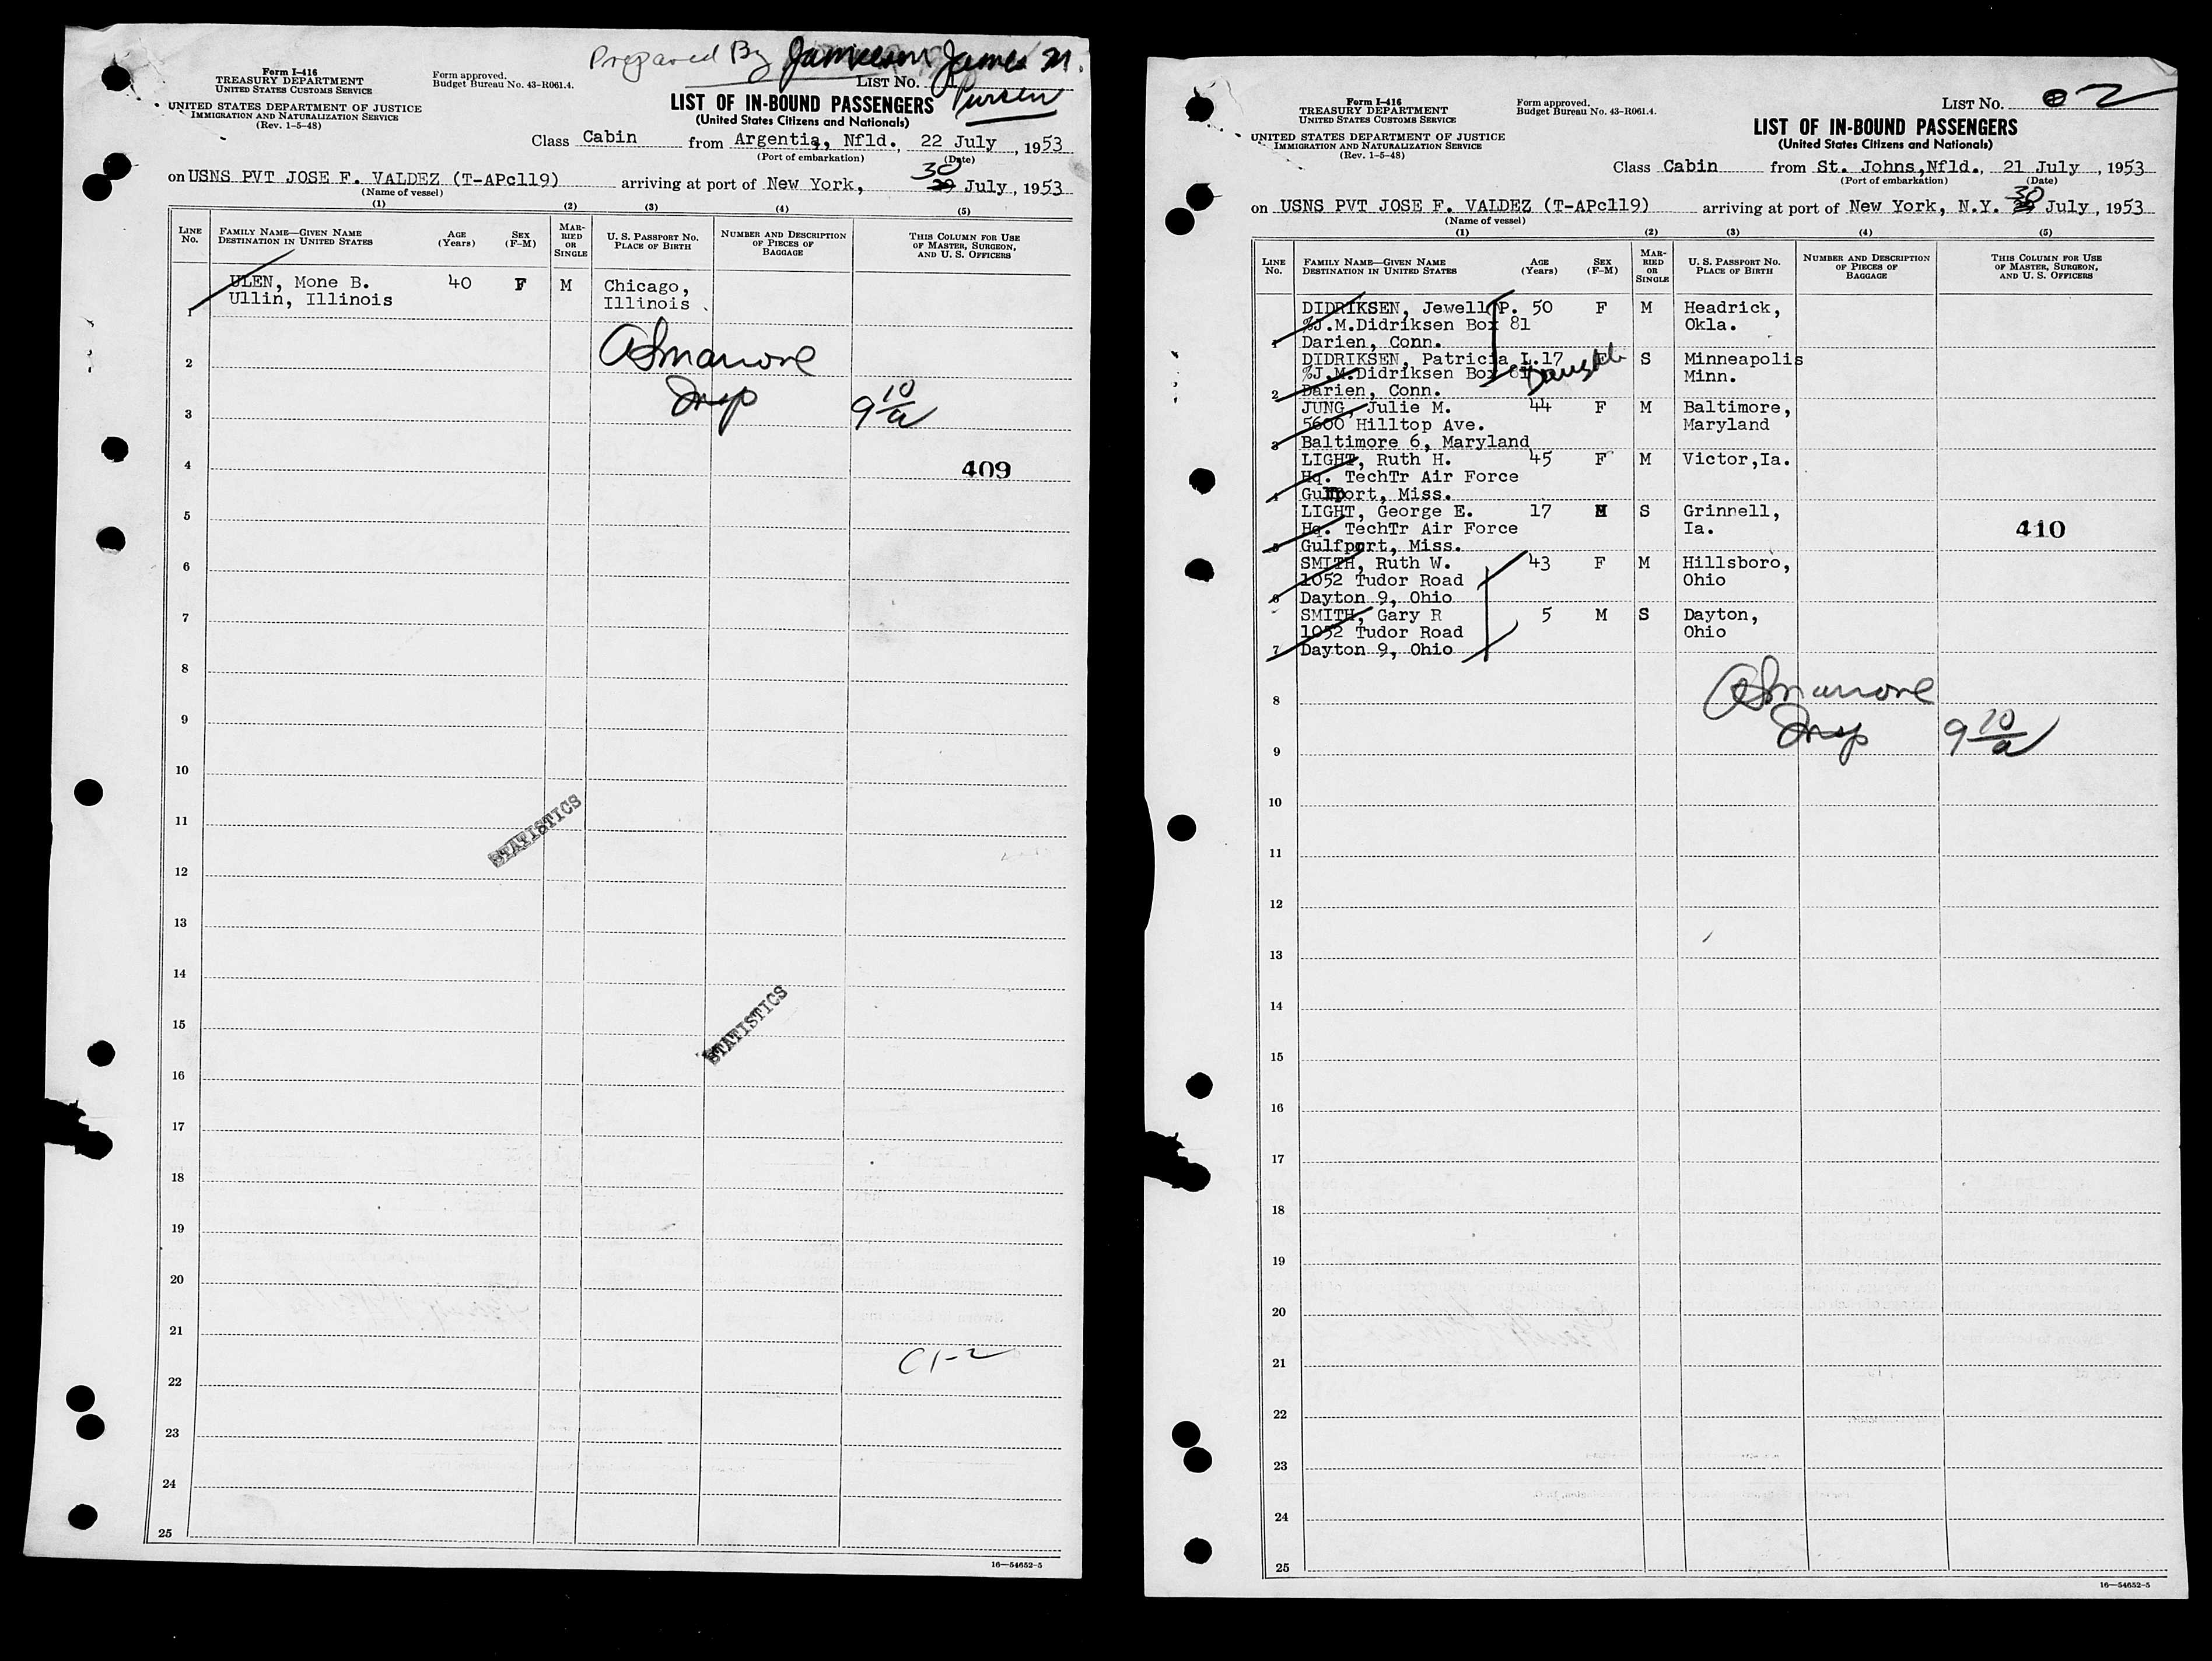 Prepared By Jamieson James M.
Purser
Form I-416
TREASURY DEPARTMENT
UNITED STATES CUSTOMS SERVICE
Form approved.
Budget Bureau No. 43-R061.4.
LIST No. 1
UNITED STATES DEPARTMENT OF JUSTICE
IMMIGRATION AND NATURALIZATION SERVICE
(Rev. 1-5-48)
LIST OF IN-BOUND PASSENGERS
(United States Citizens and Nationals)
Class Cabin from Argentia, Nfld., 22 July, 1953
(Port of embarkation) (Date)
30
on USNS PVT JOSE F. VALDEZ (T-APc119) arriving at port of New York, 29 July, 1953
(Name of vessel)
(1) (2) (3) (4) (5)
LINE No. FAMILY NAME—GIVEN NAME DESTINATION IN UNITED STATES AGE (Years) SEX (F-M) MARRIED OR SINGLE U. S. PASSPORT No. PLACE OF BIRTH NUMBER AND DESCRIPTION OF PIECES OF BAGGAGE THIS COLUMN FOR USE OF MASTER, SURGEON, AND U. S. OFFICERS
ULEN, Mone B. 40 F M Chicago,
Ullin, Illinois Illinois
1
2
Insp 9 10/a
3
4 409
5
6
7
8
9
10
STATISTICS
11
12
13
14
STATISTICS
15
16
17
18
19
20
21
C1-2
22
23
24
25
16—54652-5
Form I-416
TREASURY DEPARTMENT
UNITED STATES CUSTOMS SERVICE
Form approved.
Budget Bureau No. 43-R061.4.
LIST No. 2
UNITED STATES DEPARTMENT OF JUSTICE
IMMIGRATION AND NATURALIZATION SERVICE
(Rev. 1-5-48)
LIST OF IN-BOUND PASSENGERS
(United States Citizens and Nationals)
Class Cabin from St. Johns,Nfld., 21 July, 1953
(Port of embarkation) (Date)
30
on USNS PVT JOSE F. VALDEZ (T-APc119) arriving at port of New York, N.Y. July, 1953
(Name of vessel)
(1) (2) (3) (4) (5)
LINE No. FAMILY NAME—GIVEN NAME DESTINATION IN UNITED STATES AGE (Years) SEX (F-M) MARRIED OR SINGLE U. S. PASSPORT No. PLACE OF BIRTH NUMBER AND DESCRIPTION OF PIECES OF BAGGAGE THIS COLUMN FOR USE OF MASTER, SURGEON, AND U. S. OFFICERS
DIDRIKSEN, Jewell P. 50 F M Headrick,
%J.M.Didriksen Box 81 Okla.
1 Darien, Conn.
DIDRIKSEN, Patricia L.17 S Minneapolis
%J.M.Didriksen Box 81 Minn.
2 Darien, Conn.
JUNG, Julie M. 44 F M Baltimore,
5600 Hilltop Ave. Maryland
3 Baltimore 6, Maryland
LIGHT, Ruth H. 45 F M Victor,Ia.
Hq. TechTr Air Force
4 Gulfport, Miss.
LIGHT, George E. 17 M S Grinnell,
Hq. TechTr Air Force Ia.
410
5 Gulfport, Miss.
SMITH, Ruth W. 43 F M Hillsboro,
1052 Tudor Road Ohio
6 Dayton 9, Ohio
SMITH, Gary R 5 M S Dayton,
1052 Tudor Road Ohio
7 Dayton 9, Ohio
8
Insp 9 10/a
9
10
11
12
13
14
15
16
17
18
19
20
21
22
23
24
25
16—54652-5